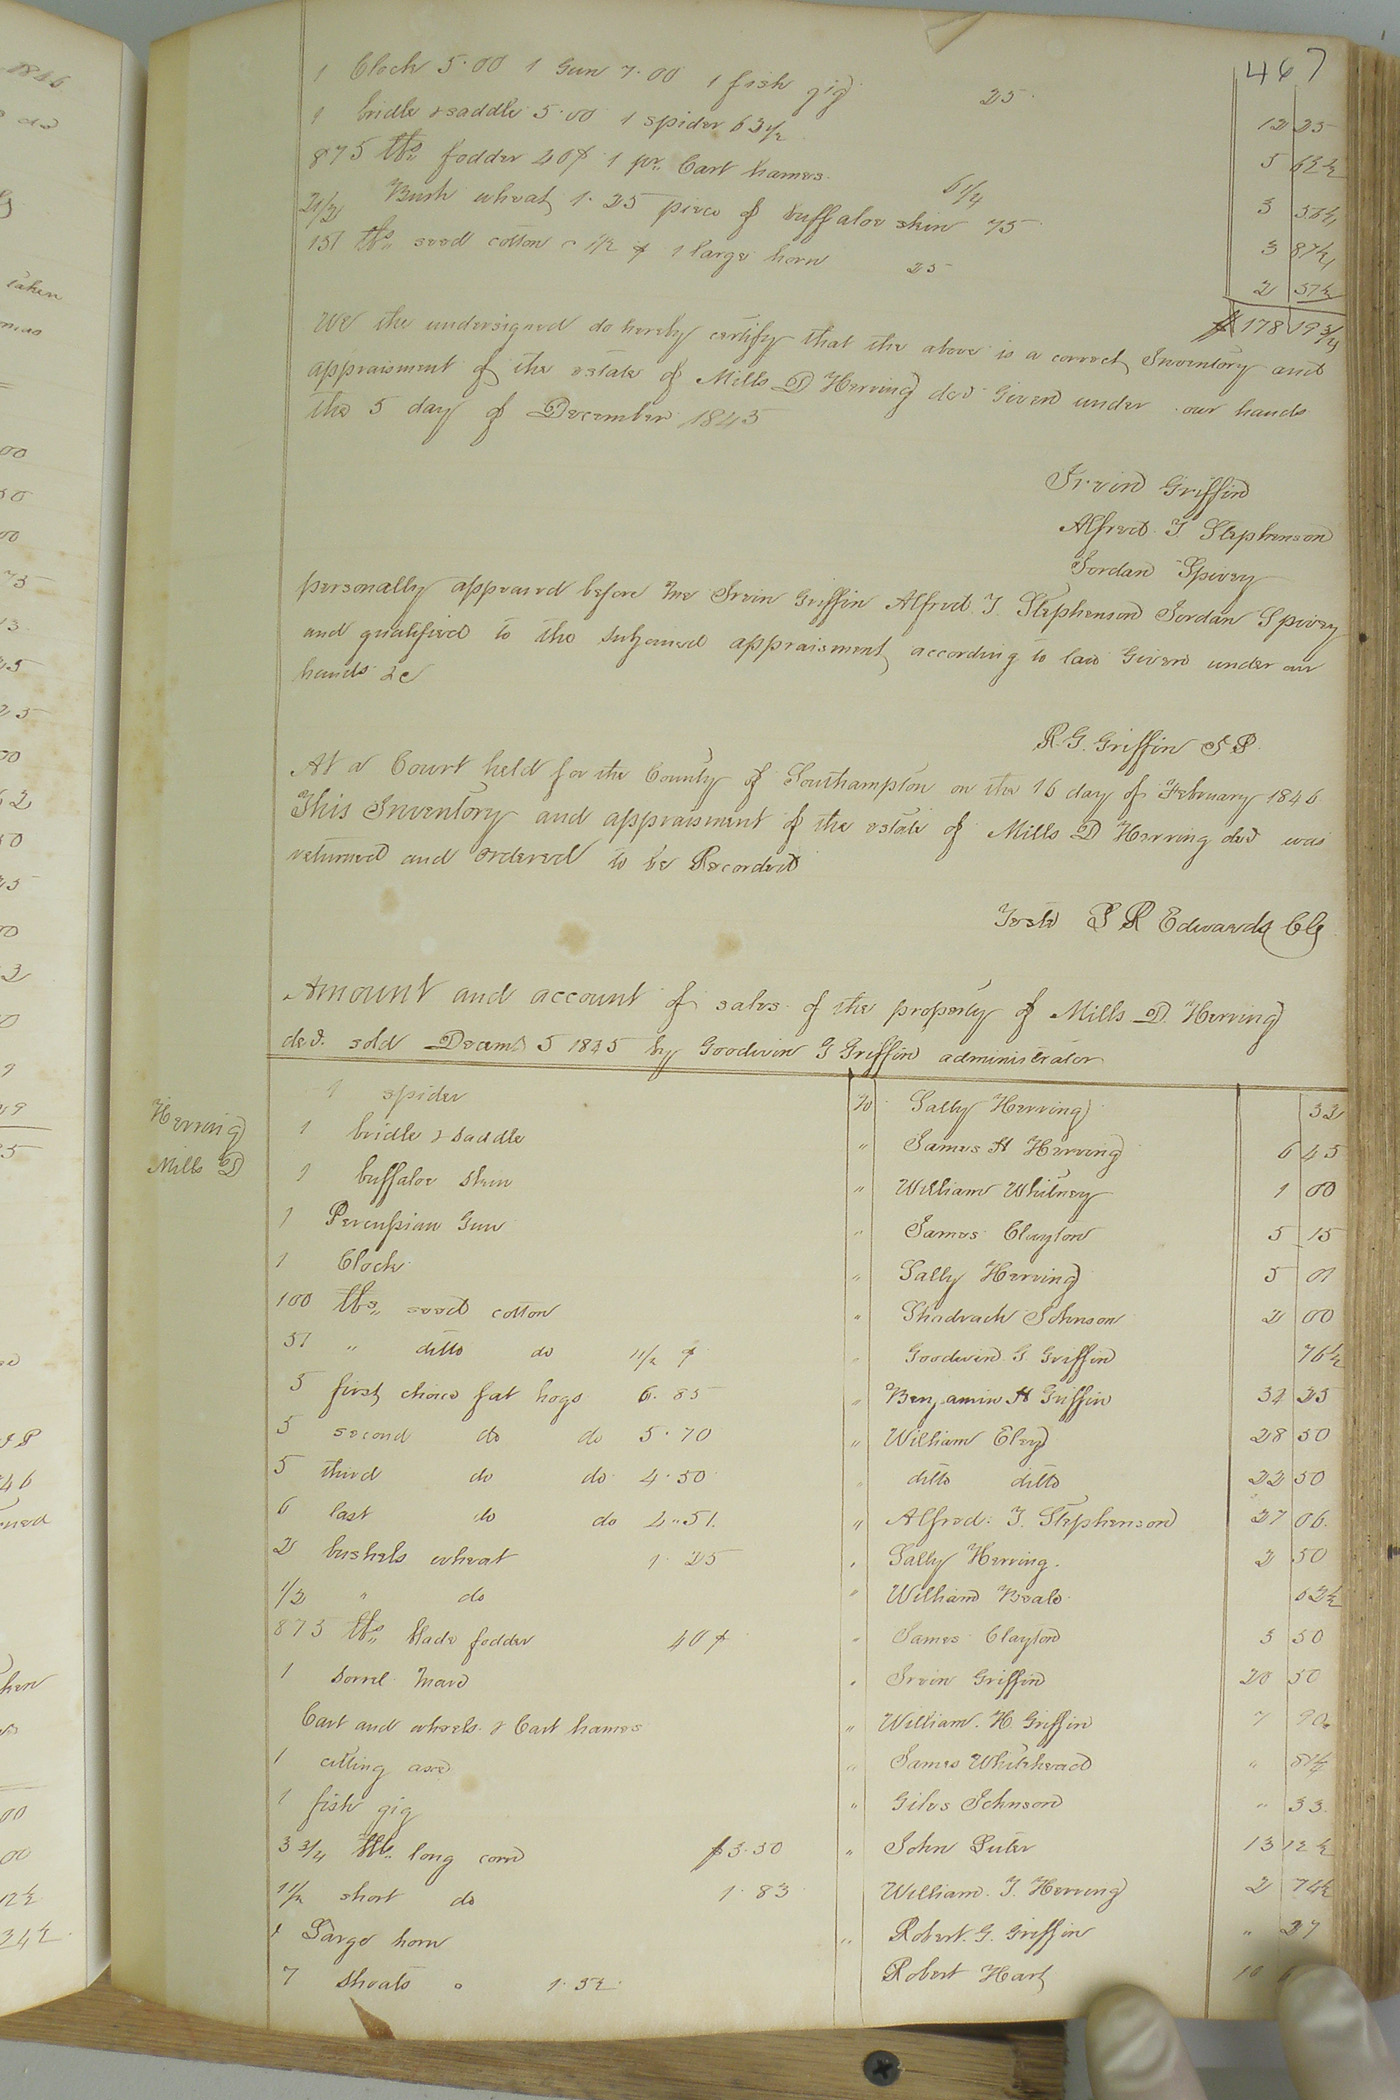 467
1 Clock 5.00 1 Gun 7.00 1 fish gig 25 12 25
1 bridle & saddle 5.00 1 spider 63 1/2 5 62 1/2
875 lbs fodder 40¢ 1 pr. Cart hames 6 1/4 3
2 1/2 Bush wheat 1.25 piece of buffaloe skin 75 3 87 1/2
151 lbs seed cotton 1 1/2 ¢ 1 large horn 25 2 51 1/2
$178 19 3/4
We the undersigned do hereby certify that the above is a correct Inventory and
appraisment of the estate of Mills D Herring decd Given under our hands
the 5 day of December 1845
Irvin Griffin
Alfred T Stephenson
Jordan Spivey
personally appeared before me Irvin Griffin Alfred T Stephenson Jordan Spivey
and qualified to the subjoined appraisment according to law Given under our
hands &c
R. G. Griffin J P
At a Court held for the County of Southampton on the 16 day of February 1846
This Inventory and appraisment of the estate of Mills D Herring decd was
returned and ordered to be Recorded
Teste L R Edwards Clk
Amount and account of sales of the property of Mills D Herring
decd. sold Decemb 5 1845 by Goodwin G Griffin administrator
Herring
Mills D
1 spider To Sally Herring 32
1 bridle & saddle " James H Herring 6 45
1 buffaloe skin " William Whitney 1 00
1 Percussian Gun " James Clayton 5 15
1 Clock " Sally Herring 5 01
100 lbs seed cotton " Shadrach Johnson 2 00
51 " ditto do 1 1/2 ¢ " Goodwin G Griffin 76 1/2
5 first choice fat hogs 6.85 " Benjamin H Griffin 34 25
5 second do do 5.70 " William Eley 28 50
5 third do do 4.50 " ditto ditto 22 50
6 last do do 4.51 " Alfred. T. Stephenson 27 06
2 bushels wheat 1.25 " Sally Herring. 2 50
1/2 " do " William Beale 62 1/2
875 lbs blade fodder 40¢ " James Clayton 3 50
1 sorrel mare " Irvin Griffin 20 50
Cart and wheels & Cart hames " William. H. Griffin 7 90
1 cutting axe " James Whitehead "
1 fish gig " Giles Johnson " 33
3 3/4 long corn $3.50 " John Luter 13 12 1/2
1 1/2 short do 1.83 William. T. Herring 2 74 1/2
1 Large horn " Robert. G. Griffin " 27
7 shoats 1.52 Robert Hart 10